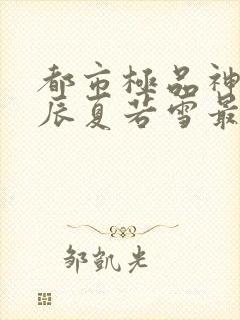 都市極品神
辰夏若雪最
邹凱光